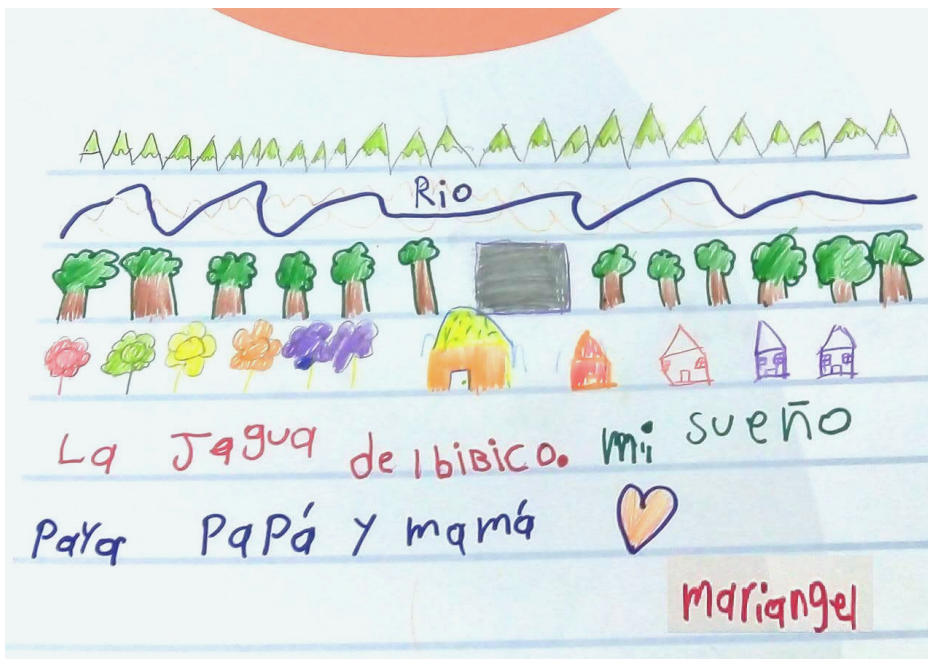 Rio
La Jagua delbiBico. mi sueño
Para PaPá y mamá
mariangel